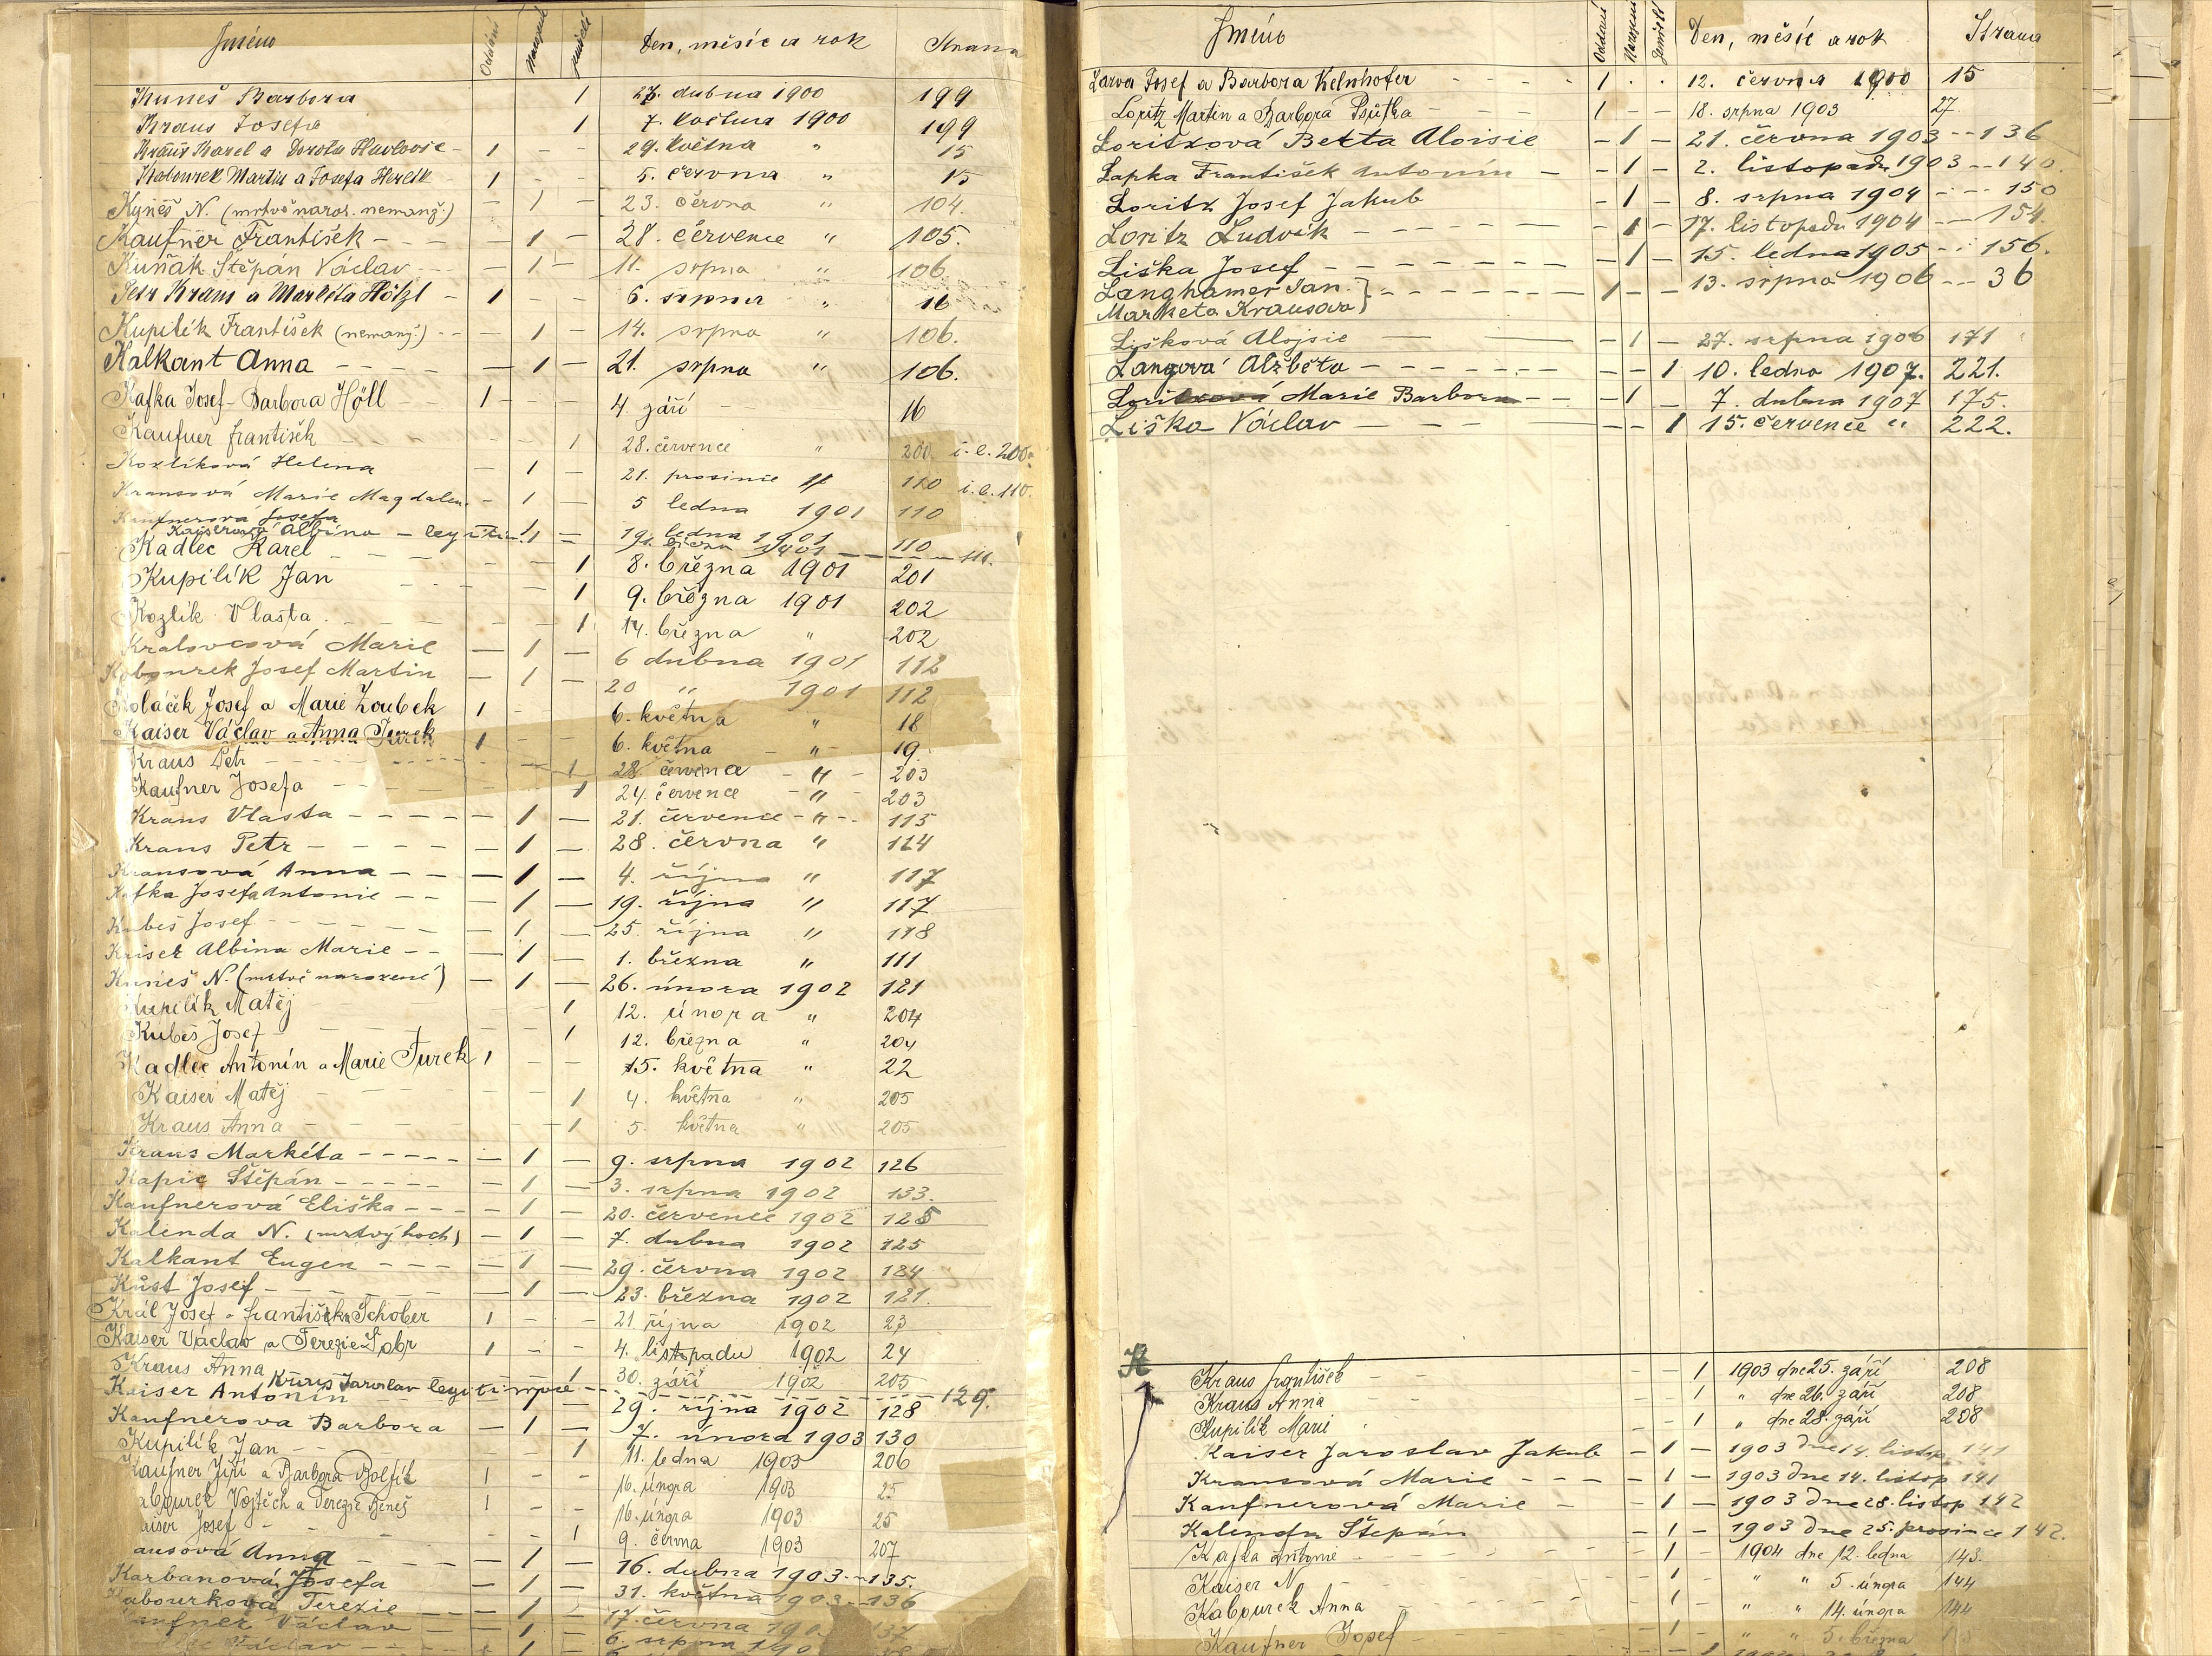 Jméno Oddaní Narození zemřelí Den, měsíc a rok Strana
Kuneš Barbora 1 27. dubna 1900 199
Kraus Josefa 1 7. května 1900 199
Kraus Karel a Dorota - 1 - - 29. května " 15
Martin a Josefa - 1 - - 5. června " 15
Kuneš N. (mrtvě naroz. nemanž.) - 1 - 23. června " 104.
Kaufner František - - - 1 - 28. července " 105.
Kuňák Štěpán Václav - - 1 - 11. srpna " 106.
Petr Kraus a Markéta Hölzl - 1 - - 6. srpna " 16
Kupilík František (nemanž.) - - - 1 - 14. srpna " 106.
Kalkant Anna - - - - - 1 - 21. srpna " 106.
Kafka Josef - Barbora Höll 1 - - 4. září - 16
Kaufner František - - - 1 28. července " 200 i. l. 200a
Kozlíková Helena - 1 - 21. prosince " 110 i. l. 110.
Krausová Marie Magdalen. - 1 - 5 ledna 1901 110
Kaufnerová Josefa 1 - 19. ledna 1901 110
Kaiserová Albína - legitim. 1901 - - - 111.
Kadlec Karel - - - - - 1 8. března 1901 201
Kupilík Jan - - - 1 9. března 1901 202
Kozlík Vlasta - - - 1 14. března " 202
Kralovcová Marie - 1 - 6 dubna 1901 112
Kabourek Josef Martin - 1 - 20 " 1901 112
Koláček Josef a Marie Zoubek 1 - 6. května " 18
Kaiser Václav a Anna Turek 1 - - 6. května - " - 19.
Kraus Petr - - - - - 1 28 července - " - 203
Kaufner Josefa - - - - 1 24. července - " - 203
Kraus Vlasta - - - - - 1 - 21. července - " - 115
Kraus Petr - - - - - 1 - 28. června " 114
Krausová Anna - - - 1 - 4. října " 117
Kafka Josefa Antonie - - - 1 - 19. října " 117
Kubeš Josef - - - - - 1 - 25. října " 118
Kaiser Albina Marie - - - 1 - 1. března " 111
Kuneš N. (mrtvě narozené) - 1 - 26. února 1902 121
Kupilík Matěj - - - 1 12. února " 204
Kubeš Josef - - - 1 12. března " 204
Kadlec Antonín a Marie Turek 1 - - 15. května " 22
Kaiser Matěj - - - 1 4. května " 205
Kraus Anna - - - - 1 5. května " 205
Kraus Markéta - - - - - - 1 - 9. srpna 1902 126
Kapic Štěpán - - - - - - 1 - 3. srpna 1902 133.
Kaufnerová Eliška - - - - 1 - 20. července 1902 125
Kalenda N. (mrtvý hoch) - 1 - 7. dubna 1902 125
Kalkant Eugen - - - - 1 - 29. června 1902 124
Küst Josef - - - - - 1 - 23. března 1902 121.
Král Josef a Františka Schober 1 - - 21. října 1902 23
Kaiser Václav a Terezie 1 - - 4. listopadu 1902 24
Kraus Anna 1 30. září 1902 205
Jaroslav legitimace - - - 129.
Kaiser Antonín 1 - 29. října 1902 128
Kaufnerova Barbora - 1 - 7. února 1903 130
Kupilík Jan - - 1 11. ledna 1903 206
Kaufner Jiří a Barbora 1 - - 16. února 1903 25
abourek Vojtěch a Terezie Beneš 1 - - 16. února 1903 25
aiser Josef - - - - 1 9. června 1903 207
ausová Anna - - - - 1 - 16. dubna 1903 - - 135.
Karbanová Josefa - 1 - 31. května 1903 - - 136
Kabourková Terezie - - - 1 - 17. června 190 137
Kaufner Václav - - 1 - 6. srpna 190
Václav - - - 1
Jméno Oddaní Narození Zemřelí Den, měsíc a rok Strana
Larva Josef a Barbora Kelnhofer - - - - 1 . . 12. června 1900 15
Loritz Martin a Barbora Psůtka - - 1 - - 18. srpna 1903 27.
Loritzová Berta Aloisie - 1 - 21. června 1903 - - 136
Lapka František Antonín - - 1 - 2. listopadu 1903 - - 140.
Loritz Josef Jakub - 1 - 8. srpna 1904 - - - 150
Loritz Ludvík - - - - - 1 - 17. listopadu 1904 - - 154.
Liška Josef - - - - - - - 1 - 15. ledna 1905 - - 156.
Langhamer Jan } - - - - - 1 - - 13. srpna 1906 - - 36
Marketa Krausova
Lišková Aloisie - - - 1 - 27. srpna 1906 171
Langová Alžběta - - - - - - - 1 10. ledna 1907. 221.
Loritzová Marie Barbora - - - 1 - 7. dubna 1907 175.
Liška Václav - - - - - 1 15. července " 222.
K
Kraus František - - - - 1 1903 dne 25. září 208
Kraus Anna - 1 " dne 26. září 208
Kupilík Marie - - 1 " dne 28. září 208
Kaiser Jaroslav Jakub - 1 - 1903 dne 14. listop. 141
Krausová Marie - - - - 1 - 1903 dne 14. listop 141
Kaufnerová Marie - - 1 - 1903 dne 28. listop 142
Kalenda Štěpán - 1 - 1903 dne 25. prosince 142.
Kafka Antonie - - - - 1 - 1904 dne 12. ledna 143.
Kaiser N - - - 1 - " " 5. února 144
Kabourek Anna - - - 1 - " " 14. února 144
Kaufner Josef - - - 1 - " " 5. března